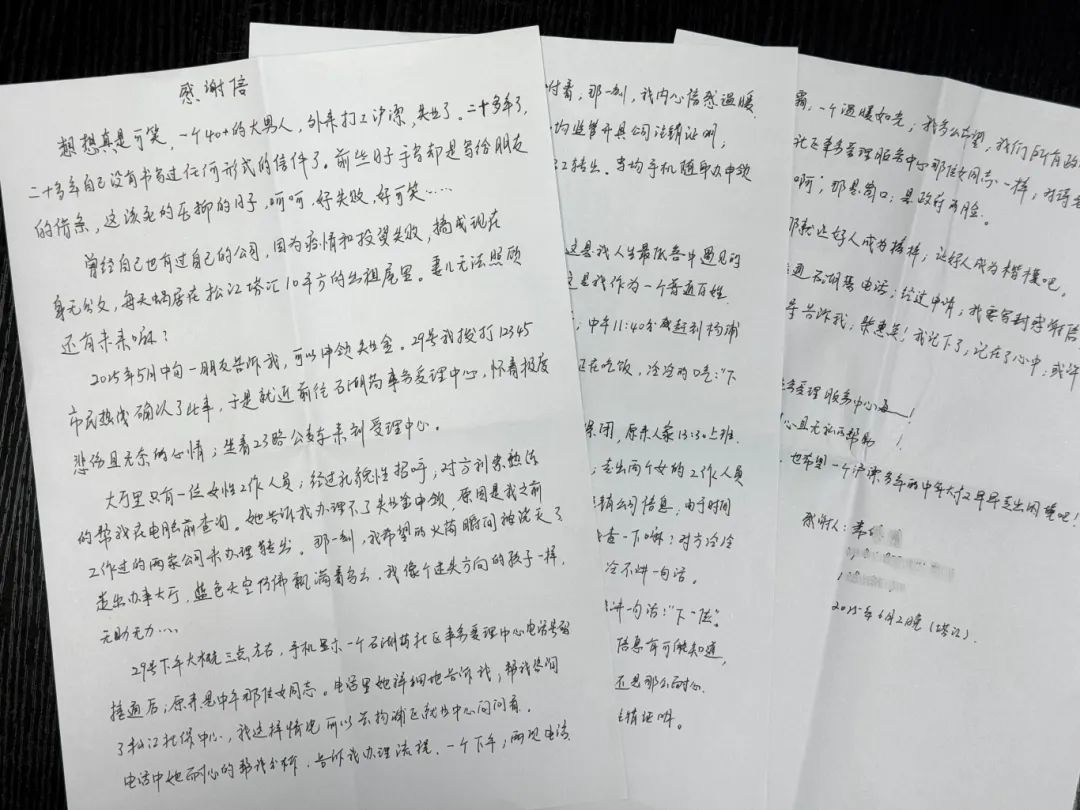 感谢信
想想真是可笑，一个40+的大男人，外来打工沪漂，失业了。二十多年了，
二十多年自己没有书写过任何形式的信件了。前些日子手写却是写给朋友
的借条，这该死的无聊的日子，呵呵，好失败，好可笑……
曾经自己也有过自己的公司，因为疫情和投资失败，搞成现在
身无分文，每天蜗居在松江塔汇10平方的出租屋里。妻儿无法照顾
还有未来嘛？
2025年5月中旬一朋友告诉我，可以申领失业金。29号我拨打12345
市民热线确认了此事，于是就近前往石湖荡事务受理中心，怀着极度
悲伤且无奈的心情；坐着23路公交车来到受理中心。
大厅里只有一位女性工作人员；经过礼貌性招呼；对方非常热情
的帮我在电脑前查询。她告诉我办理不了失业金申领，原因是我之前
工作过的两家公司未办理转出。那一刻，我希望的火苗瞬间被浇灭了
走出办事大厅，蓝色天空仿佛飘满着乌云。我像个迷失方向的孩子一样，
无助无力……
29号下午大概三点左右，手机显示一个石湖荡社区事务受理中心电话号码
接通后；原来是中午那位女同志。电话里她详细地告诉我，帮我咨询
了松江社保中心，我这样情况可以去杨浦区就业中心问问看。
电话中她耐心的帮我分析，告诉我办理流程。一个下午；两次电话
付着，那一刻，我内心倍感温暖
均监管开具公司注销证明，
工转出。当场手机随即办申领
这是我人生最低谷中遇见的
是我作为一个普通百姓
；中午11:40分我赶到杨浦
在吃饭，冷冷的口气："下
闭，原来人家13:30上班
；走出两个女的工作人员
销公司信息，由于时间
查一下嘛？对方冷冷
冷不烘一句话。
讲一句话："下一位"。
信息有可能知道，
还是那么耐心
销证明。
霜，一个温暖如光；我多么希望，我们所有政
社区事务受理服务中心那位女同志一样，对待
啊；那是窗口；是政府的脸。
那就让好人成为榜样；让好人成为楷模吧。
通石湖荡电话；经过申请，我要写封感谢信
号告诉我；柴惠英！我记下了，记在了心中；或许
务受理服务中心每
心且无私的帮助！
也希望一个沪漂多年的中年大叔早早走出困境吧！
感谢人：韦
2025年6月2日晚（塔汇）.